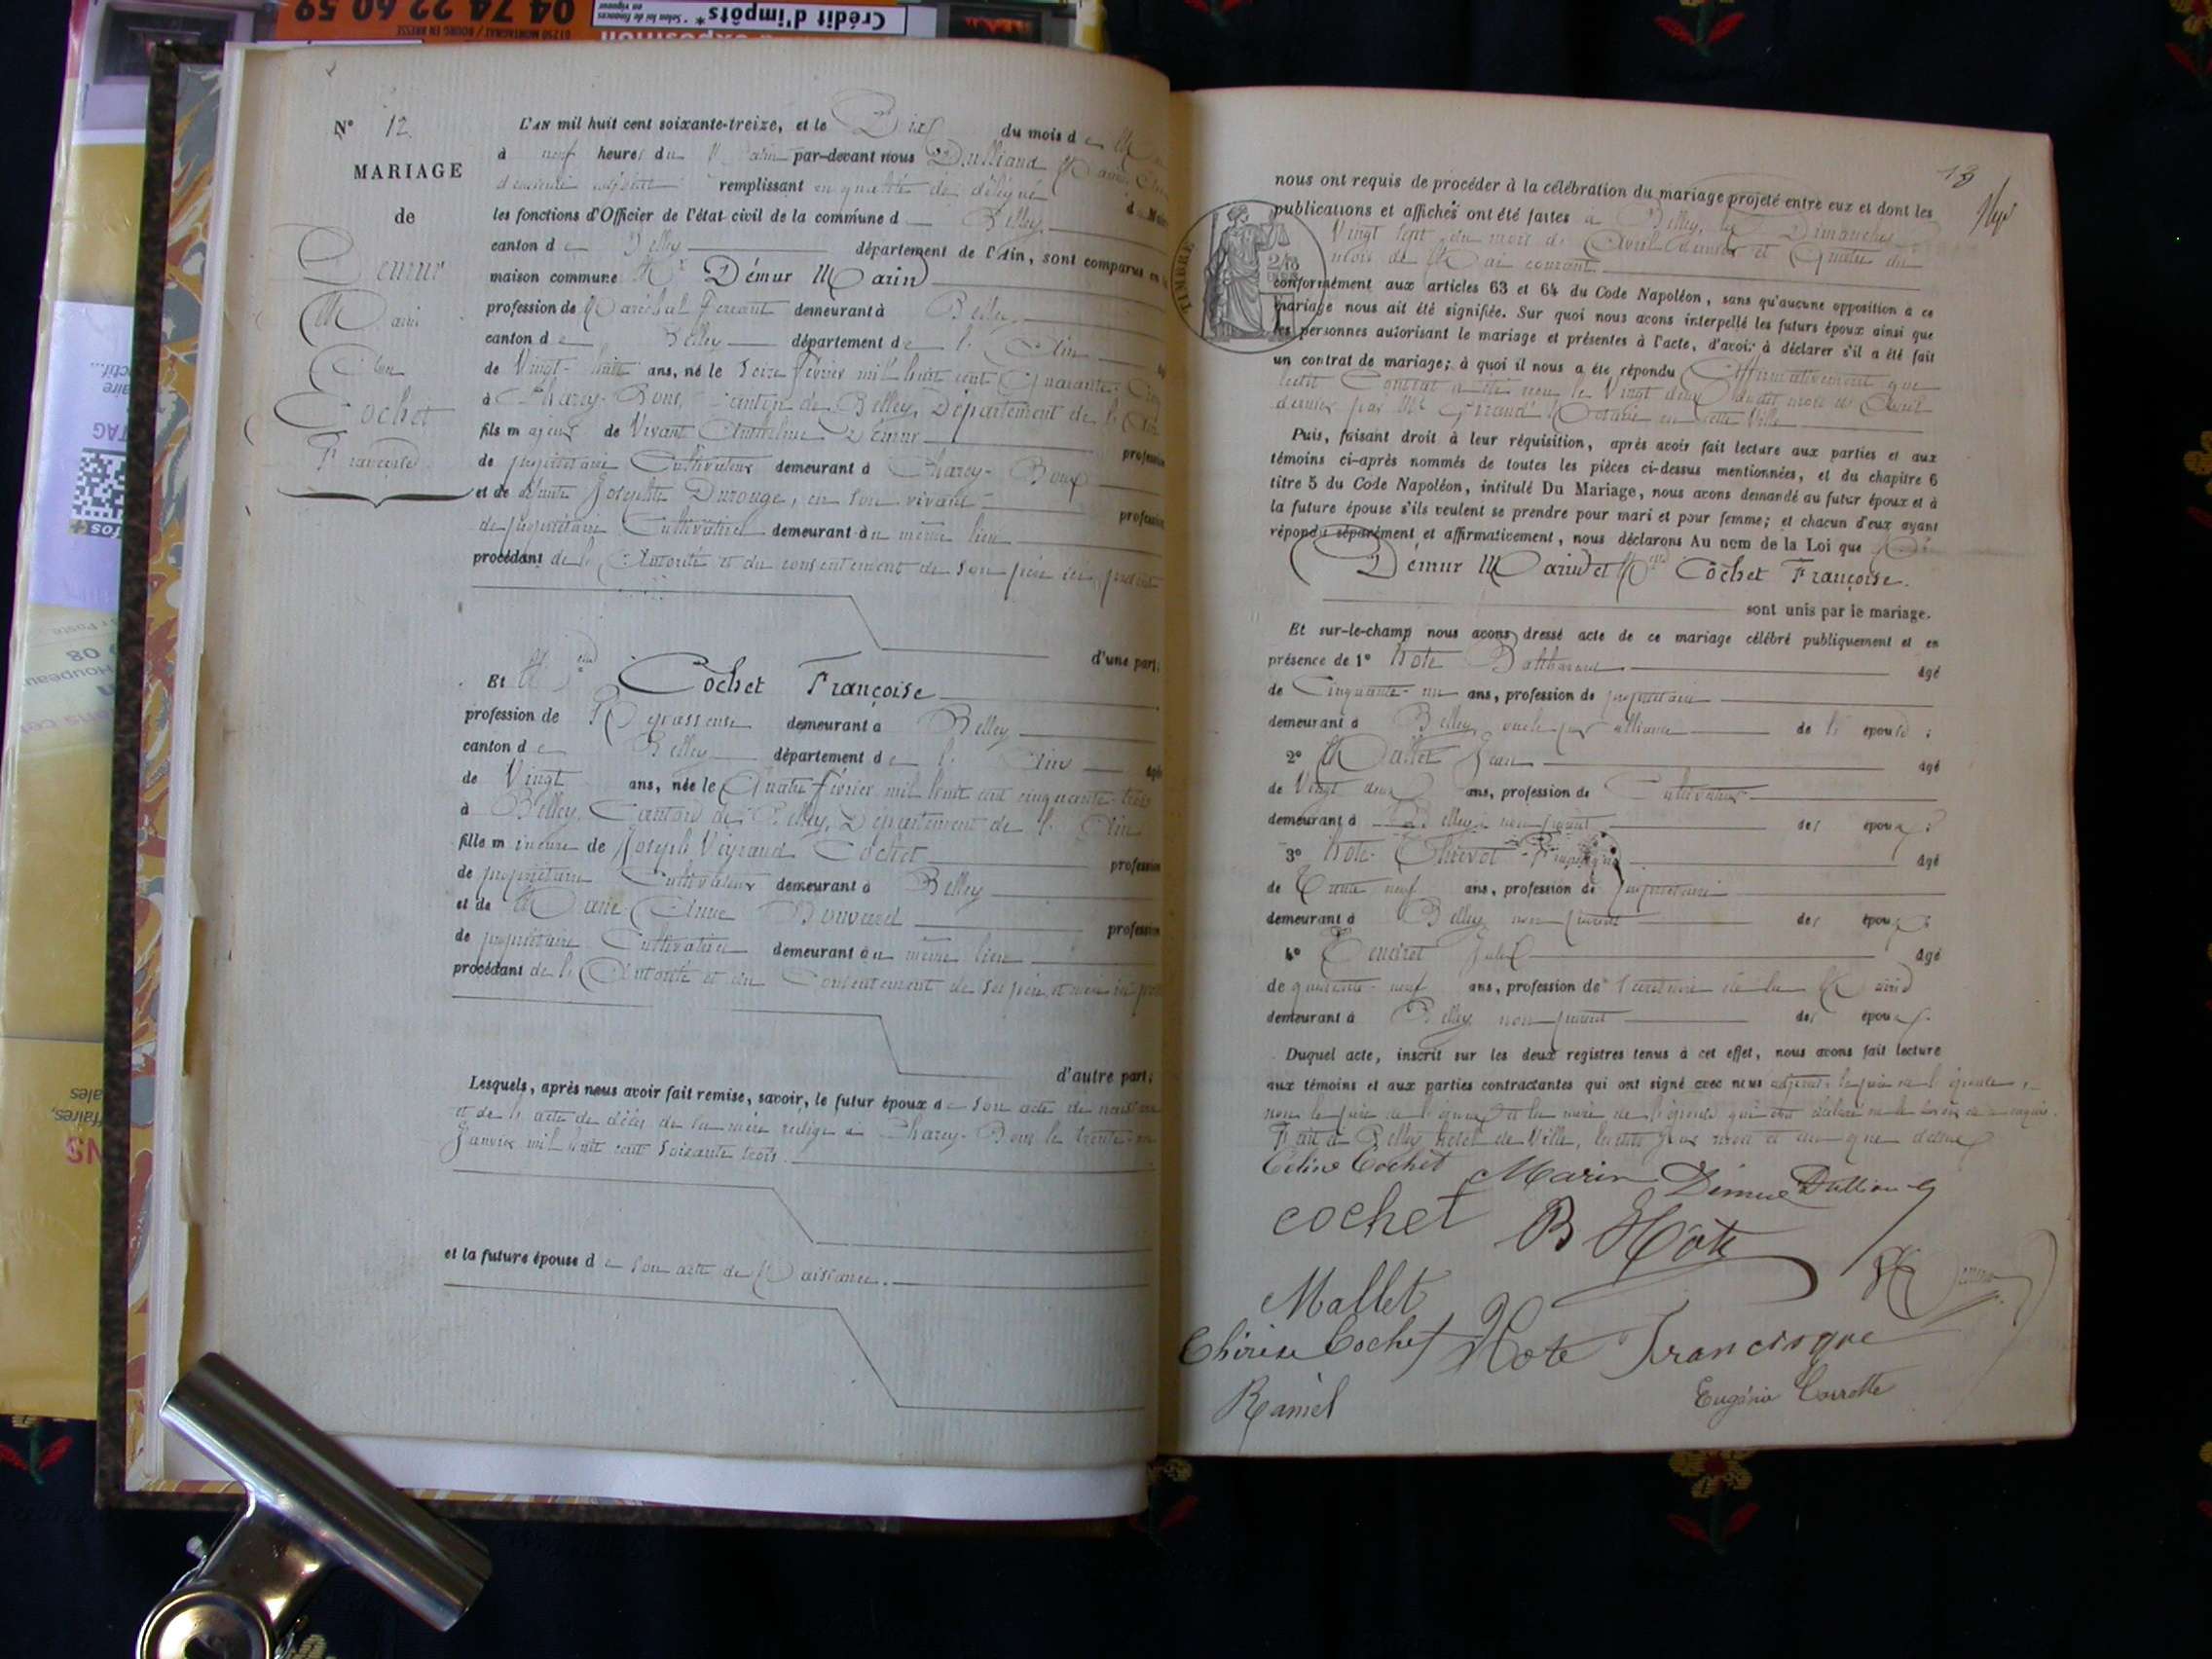 04 74 22 60 59
01250 MONTAGNAT / BOURG EN BRESSE
Crédit d'impôts*
* Selon loi de finances
en vigueur
N° 12.
MARIAGE
de
Demur
Marin
Cochet
Françoise
L'AN mil huit cent soixante-treize, et le Dix du mois de
à neuf heures du Matin par-devant nous Dulliand
adjoint remplissant en qualité de délégué
les fonctions d'Officier de l'état civil de la commune d Belley
canton de Belley département de l'Ain, sont comparus en
maison commune Mr Démur Marin
profession de Maréchal ferrant demeurant à Belley
canton de Belley département de l'Ain
de Vingt-huit ans, né le seize février mil huit cent Quarante-
à Charey-Bons, Canton de Belley, Département de l'Ain
fils majeur de Vivant Anthelme Démur profession
de propriétaire Cultivateur demeurant à Charey-Bons
et de défunte Josephte Durouge, en son vivant profession
de propriétaire Cultivatrice demeurant au même lieu
procédant de l'Autorité et du consentement de son père ici présent
d'une part;
Et Cochet Françoise
profession de Repasseuse demeurant à Belley
canton de Belley département de l'Ain âgé
de Vingt ans, née le Quatre février mil huit cent cinquante-trois
à Belley, Canton de Belley, Département de l'Ain
fille mineure de Joseph Veyraud Cochet profession
de propriétaire Cultivateur demeurant à Belley
et de Marie Anne Bouvard profession
de propriétaire Cultivatrice demeurant au même lieu
procédant de l'Autorité et du Consentement de ses père et mère ici
d'autre part;
Lesquels, après nous avoir fait remise, savoir, le futur époux de son acte de naissance
et de l'acte de décès de sa mère rédigé à Charey-Bons le trente-un
Janvier mil huit cent soixante trois.
et la future épouse de son acte de Naissance.
13
TIMBRE
nous ont requis de procéder à la célébration du mariage projeté entre eux et dont les
publications et affiches ont été faites à Belley, les Dimanches
Vingt sept du mois d'Avril dernier et Quatre du
mois de Mai courant
conformément aux articles 63 et 64 du Code Napoléon, sans qu'aucune opposition à ce
mariage nous ait été signifiée. Sur quoi nous avons interpellé les futurs époux ainsi que
les personnes autorisant le mariage et présentes à l'acte, d'avoir à déclarer s'il a été fait
un contrat de mariage; à quoi il nous a été répondu Affirmativement que
ledit Contrat a été reçu le Vingt deux dudit mois d'Avril
dernier par Me Giraud Notaire en cette Ville
Puis, faisant droit à leur réquisition, après avoir fait lecture aux parties et aux
témoins ci-après nommés de toutes les pièces ci-dessus mentionnées, et du chapitre 6
titre 5 du Code Napoléon, intitulé Du Mariage, nous avons demandé au futur époux et à
la future épouse s'ils veulent se prendre pour mari et pour femme; et chacun d'eux ayant
répondu séparément et affirmativement, nous déclarons Au nom de la Loi que
Démur Marin et Cochet Françoise.
sont unis par le mariage.
Et sur-le-champ nous avons dressé acte de ce mariage célébré publiquement et en
présence de 1° Hote Balthazard âgé
de Cinquante-un ans, profession de propriétaire
demeurant à Belley, oncle par alliance de l'épouse;
2° Mallet Jean âgé
de Vingt deux ans, profession de Cultivateur
demeurant à Belley non parent des époux;
3° Hote âgé
de Trente neuf ans, profession de propriétaire
demeurant à Belley non parent des époux
4° Tendret Jules âgé
de quarante-neuf ans, profession de Secrétaire de la Mairie
demeurant à Belley non parent des époux.
Duquel acte, inscrit sur les deux registres tenus à cet effet, nous avons fait lecture
aux témoins et aux parties contractantes qui ont signé avec nous
non le père de l'époux et la mère de l'épouse qui ont déclaré ne le savoir de ce requis.
Fait à Belley hôtel de Ville, lesdits jour mois et an que dessus
Céline Cochet Marin Démur Dulliand
cochet B Hôte
Mallet
Thérèse Cochet Hote Francisque
Ramel Eugénie Carrotte